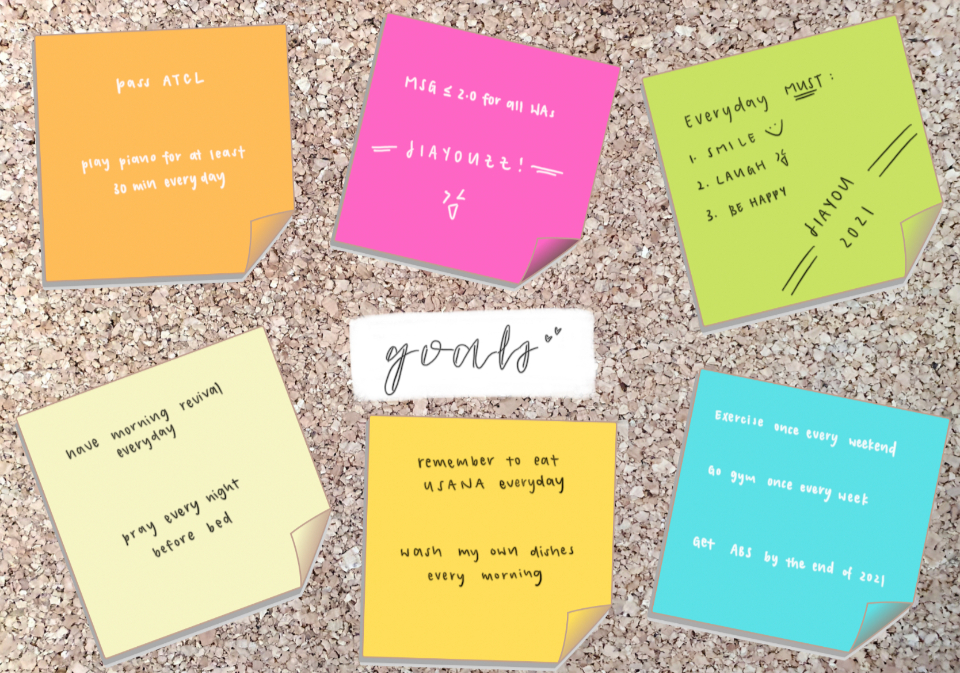 pass ATCL
play piano for at least
30 min everyday
MSG ≤ 2.0 for all WAs
JIAYOUZZ!
Everyday MUST:
1. SMILE
2. LAUGH
3. BE HAPPY
JIAYOU
2021
goals
have morning revival
everyday
pray every night
before bed
remember to eat
USANA everyday
wash my own dishes
every morning
Exercise once every weekend
Go gym once every week
Get ABS by the end of 2021